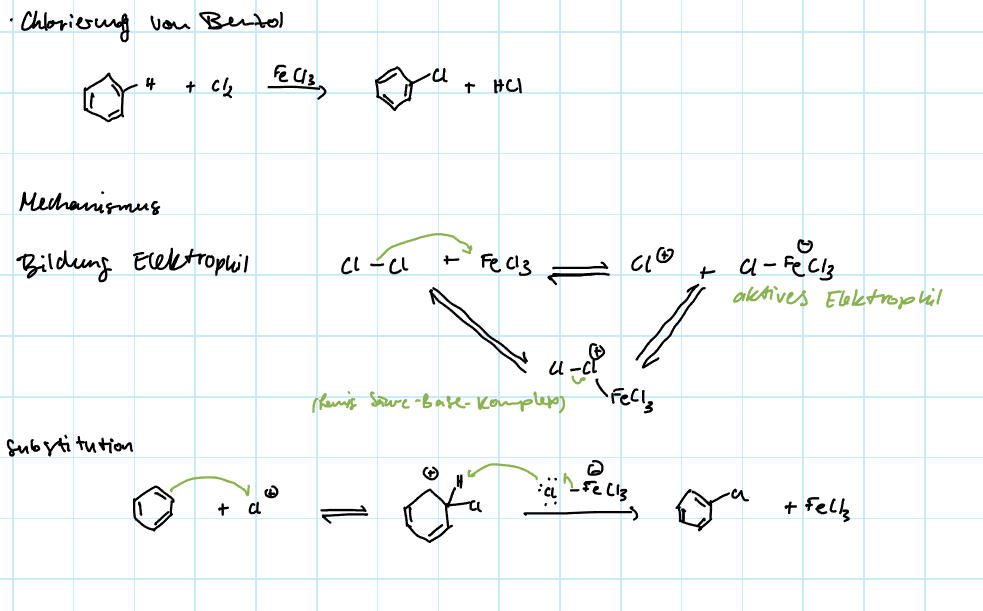 · Chlorierung von Benzol
H + Cl₂ FeCl₃ Cl + HCl
Mechanismus
Bildung Elektrophil Cl – Cl + FeCl₃ ⇌ Cl⊕ + Cl – FeCl₃ ⊖
aktives Elektrophil
Cl – Cl⊕ FeCl₃
(Lewis Säure-Base-Komplex)
Substitution
+ Cl⊕ ⇌ ⊕ H Cl :Cl – FeCl₃ ⊖ Cl + FeCl₃